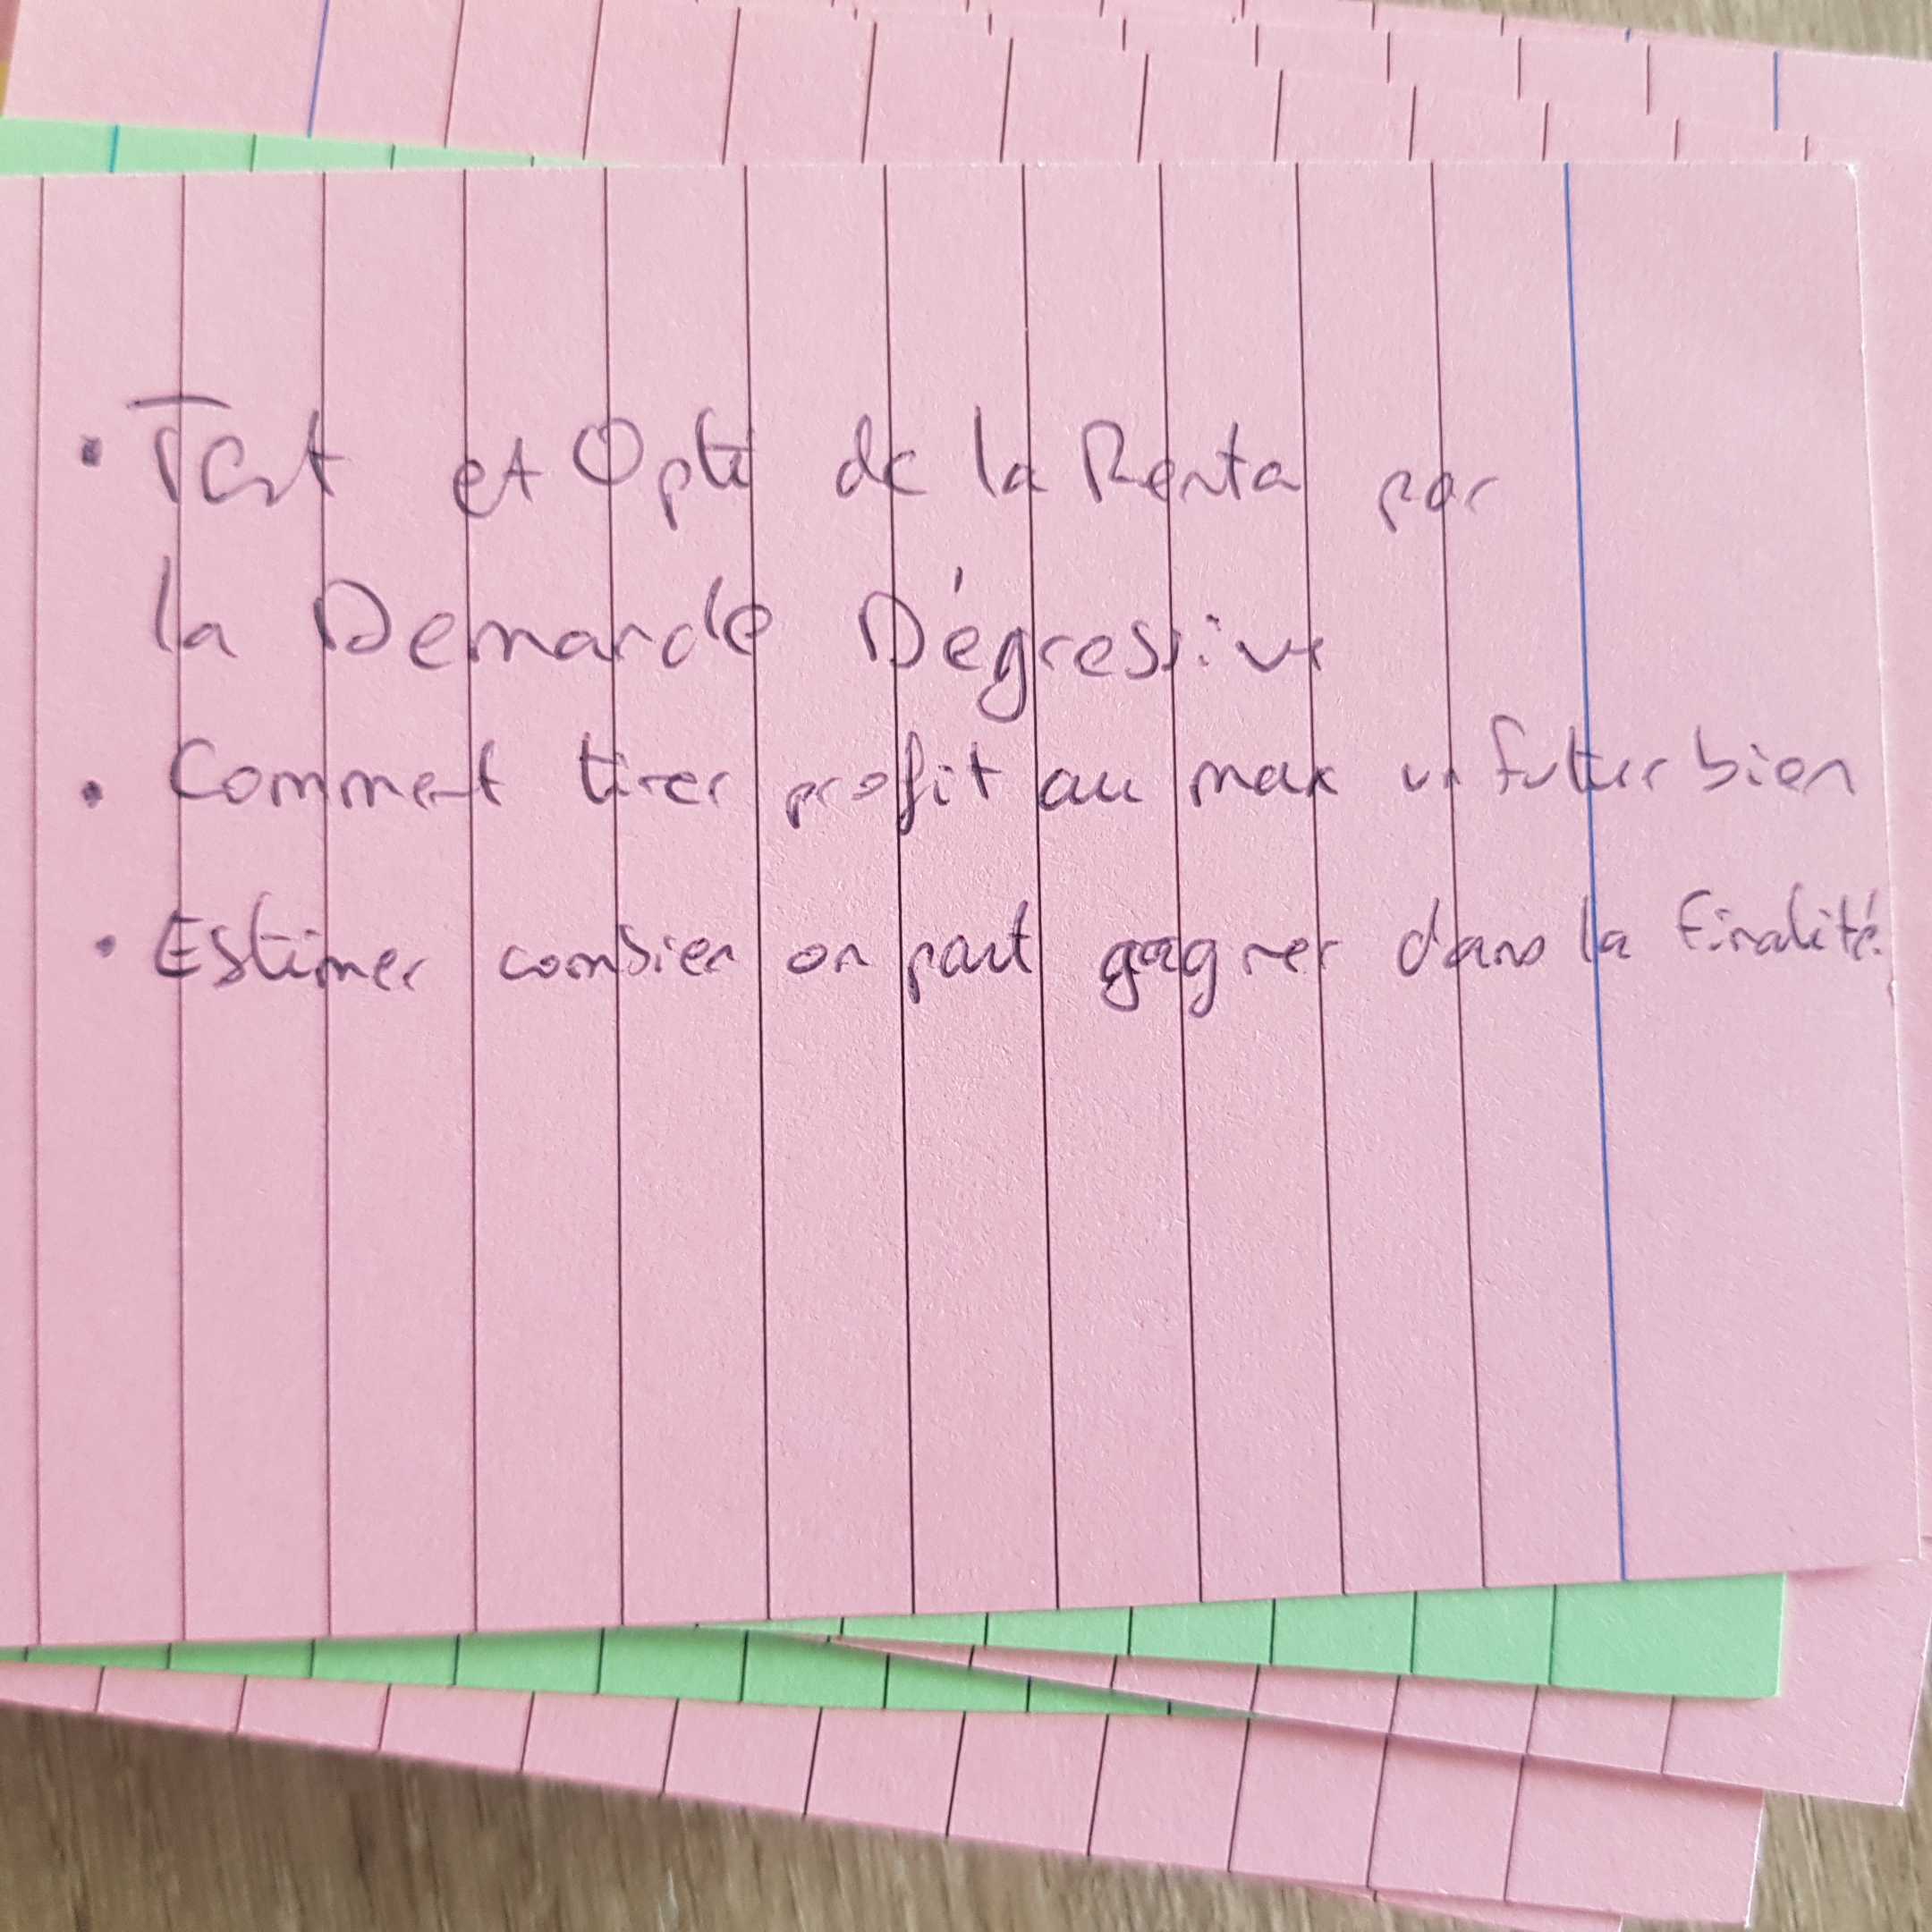 • Test et Opti de la Renta par
la Demande Dégressive
• Comment tirer profit au max un futur bien
• Estimer combien on part gagner dans la finalité.